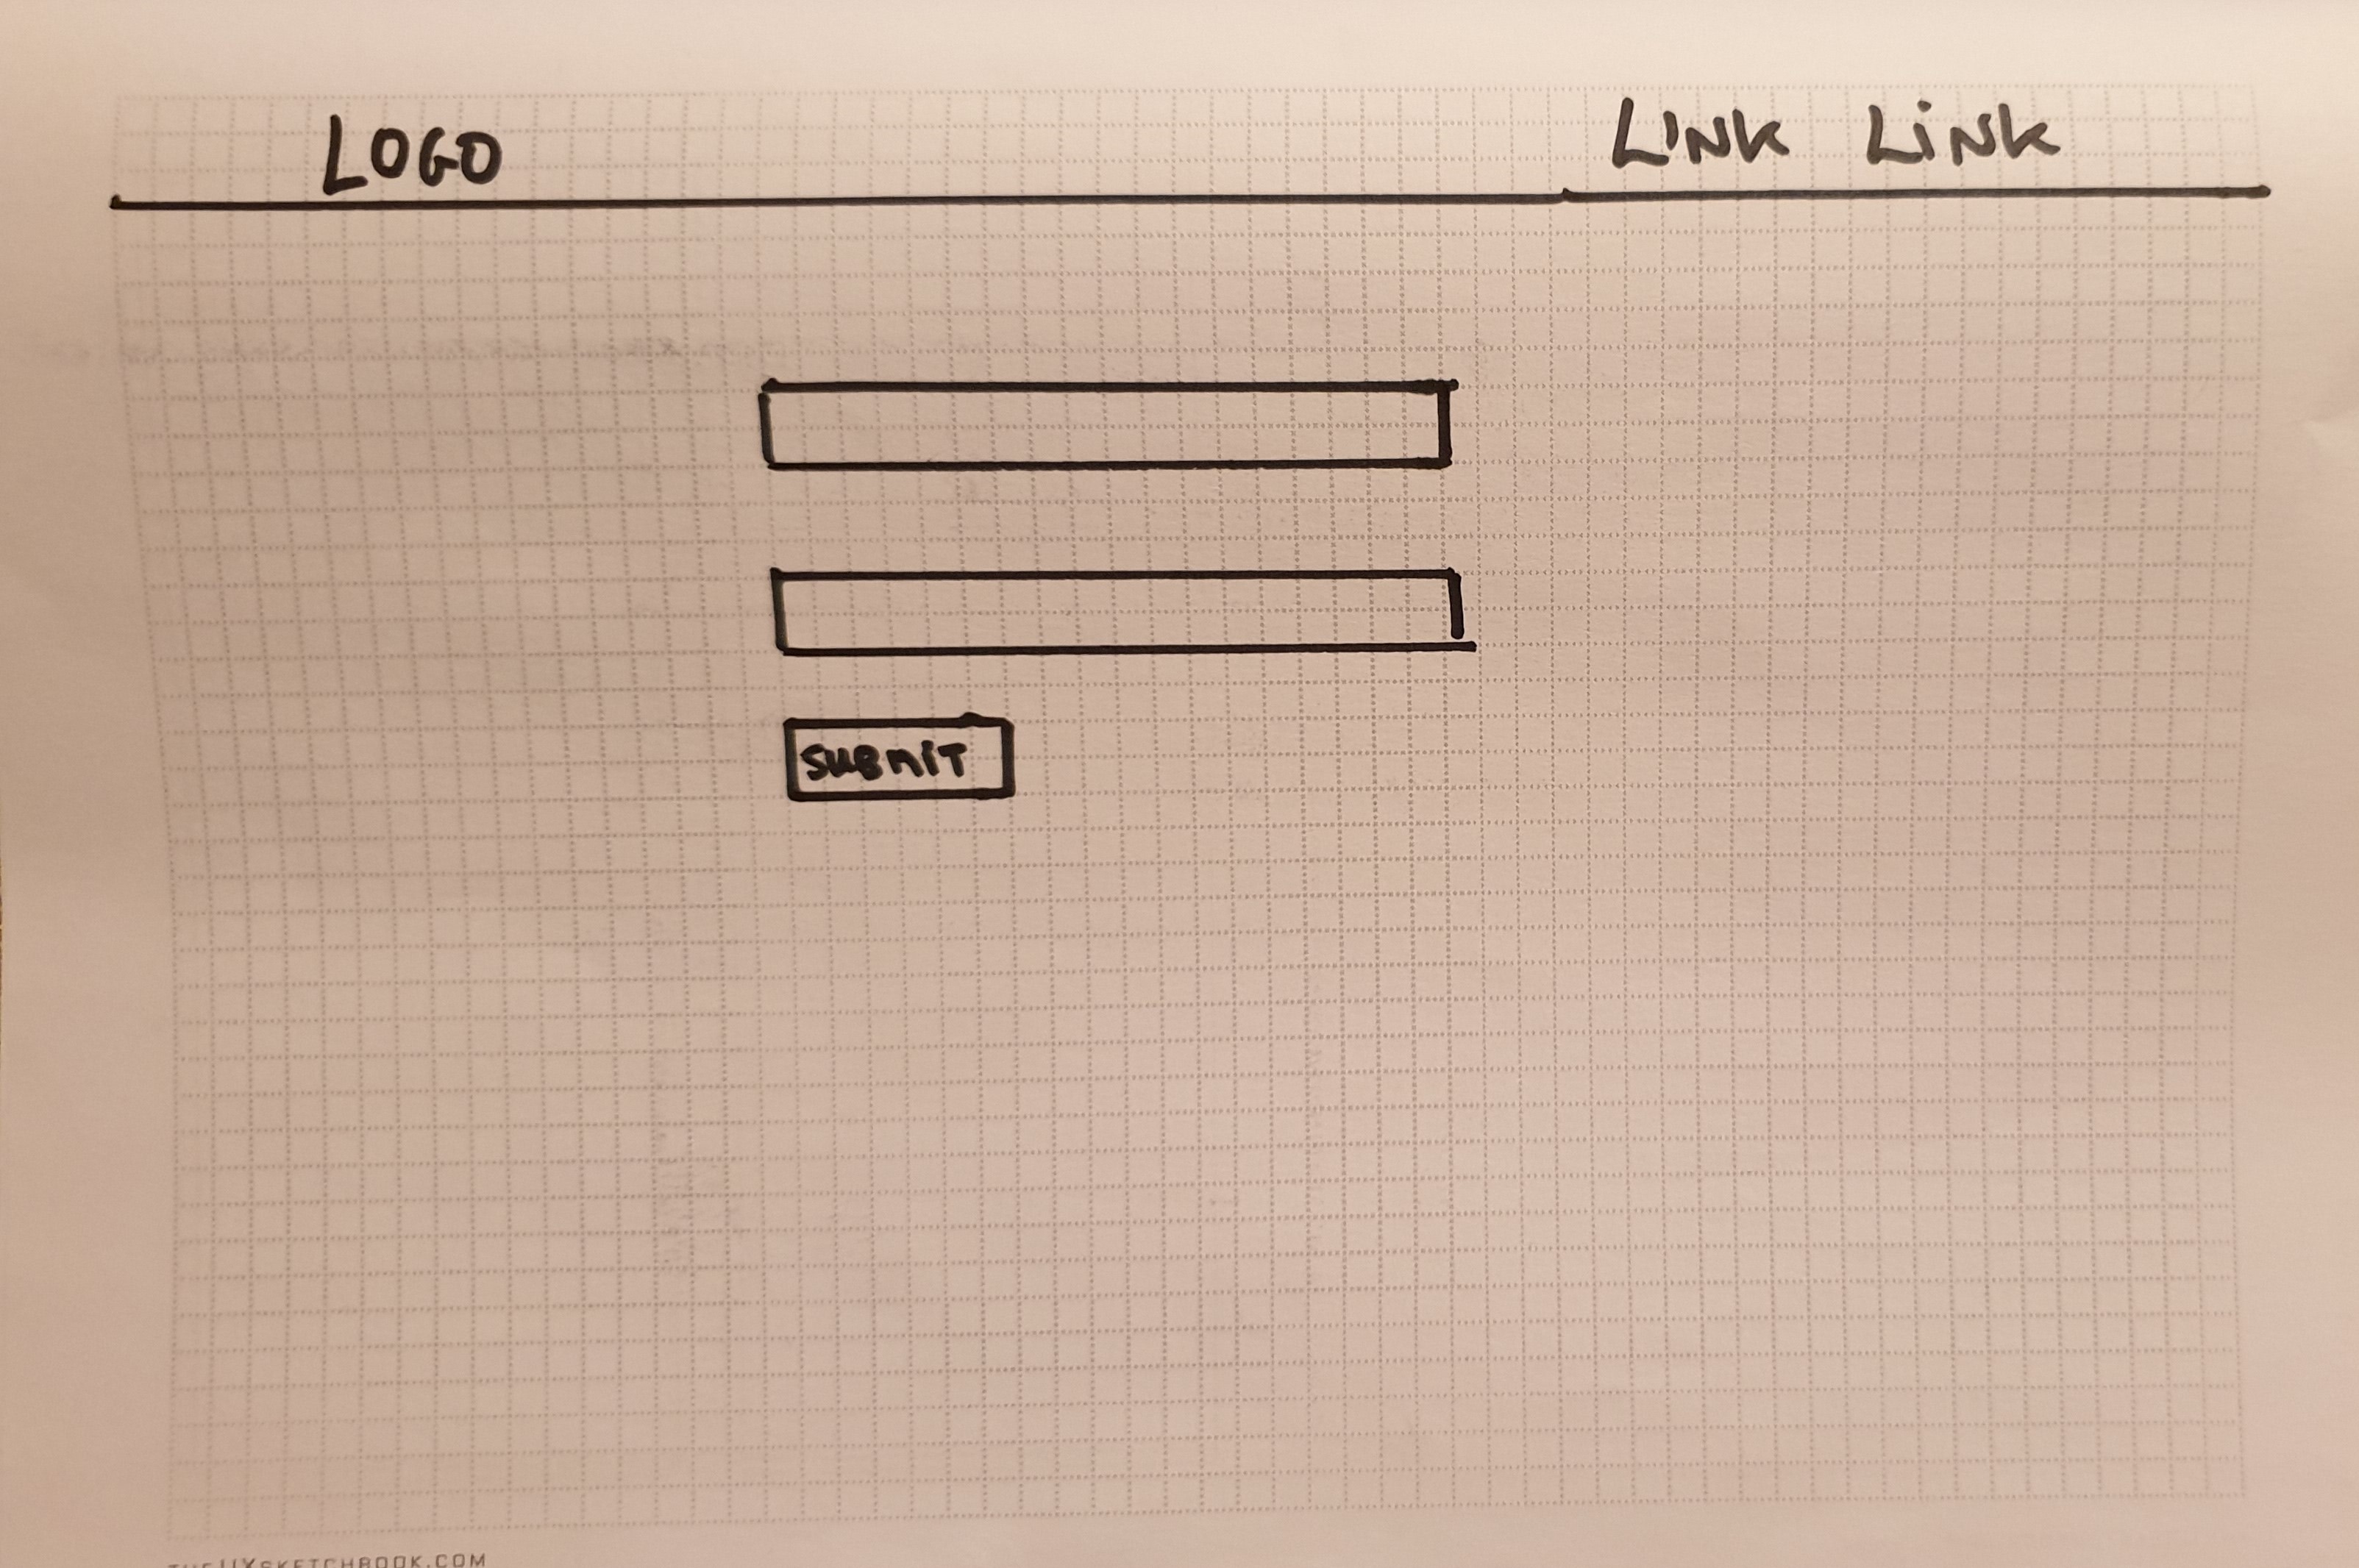 LOGO LINK LINK
SUBMIT
THEUXSKETCHBOOK.COM